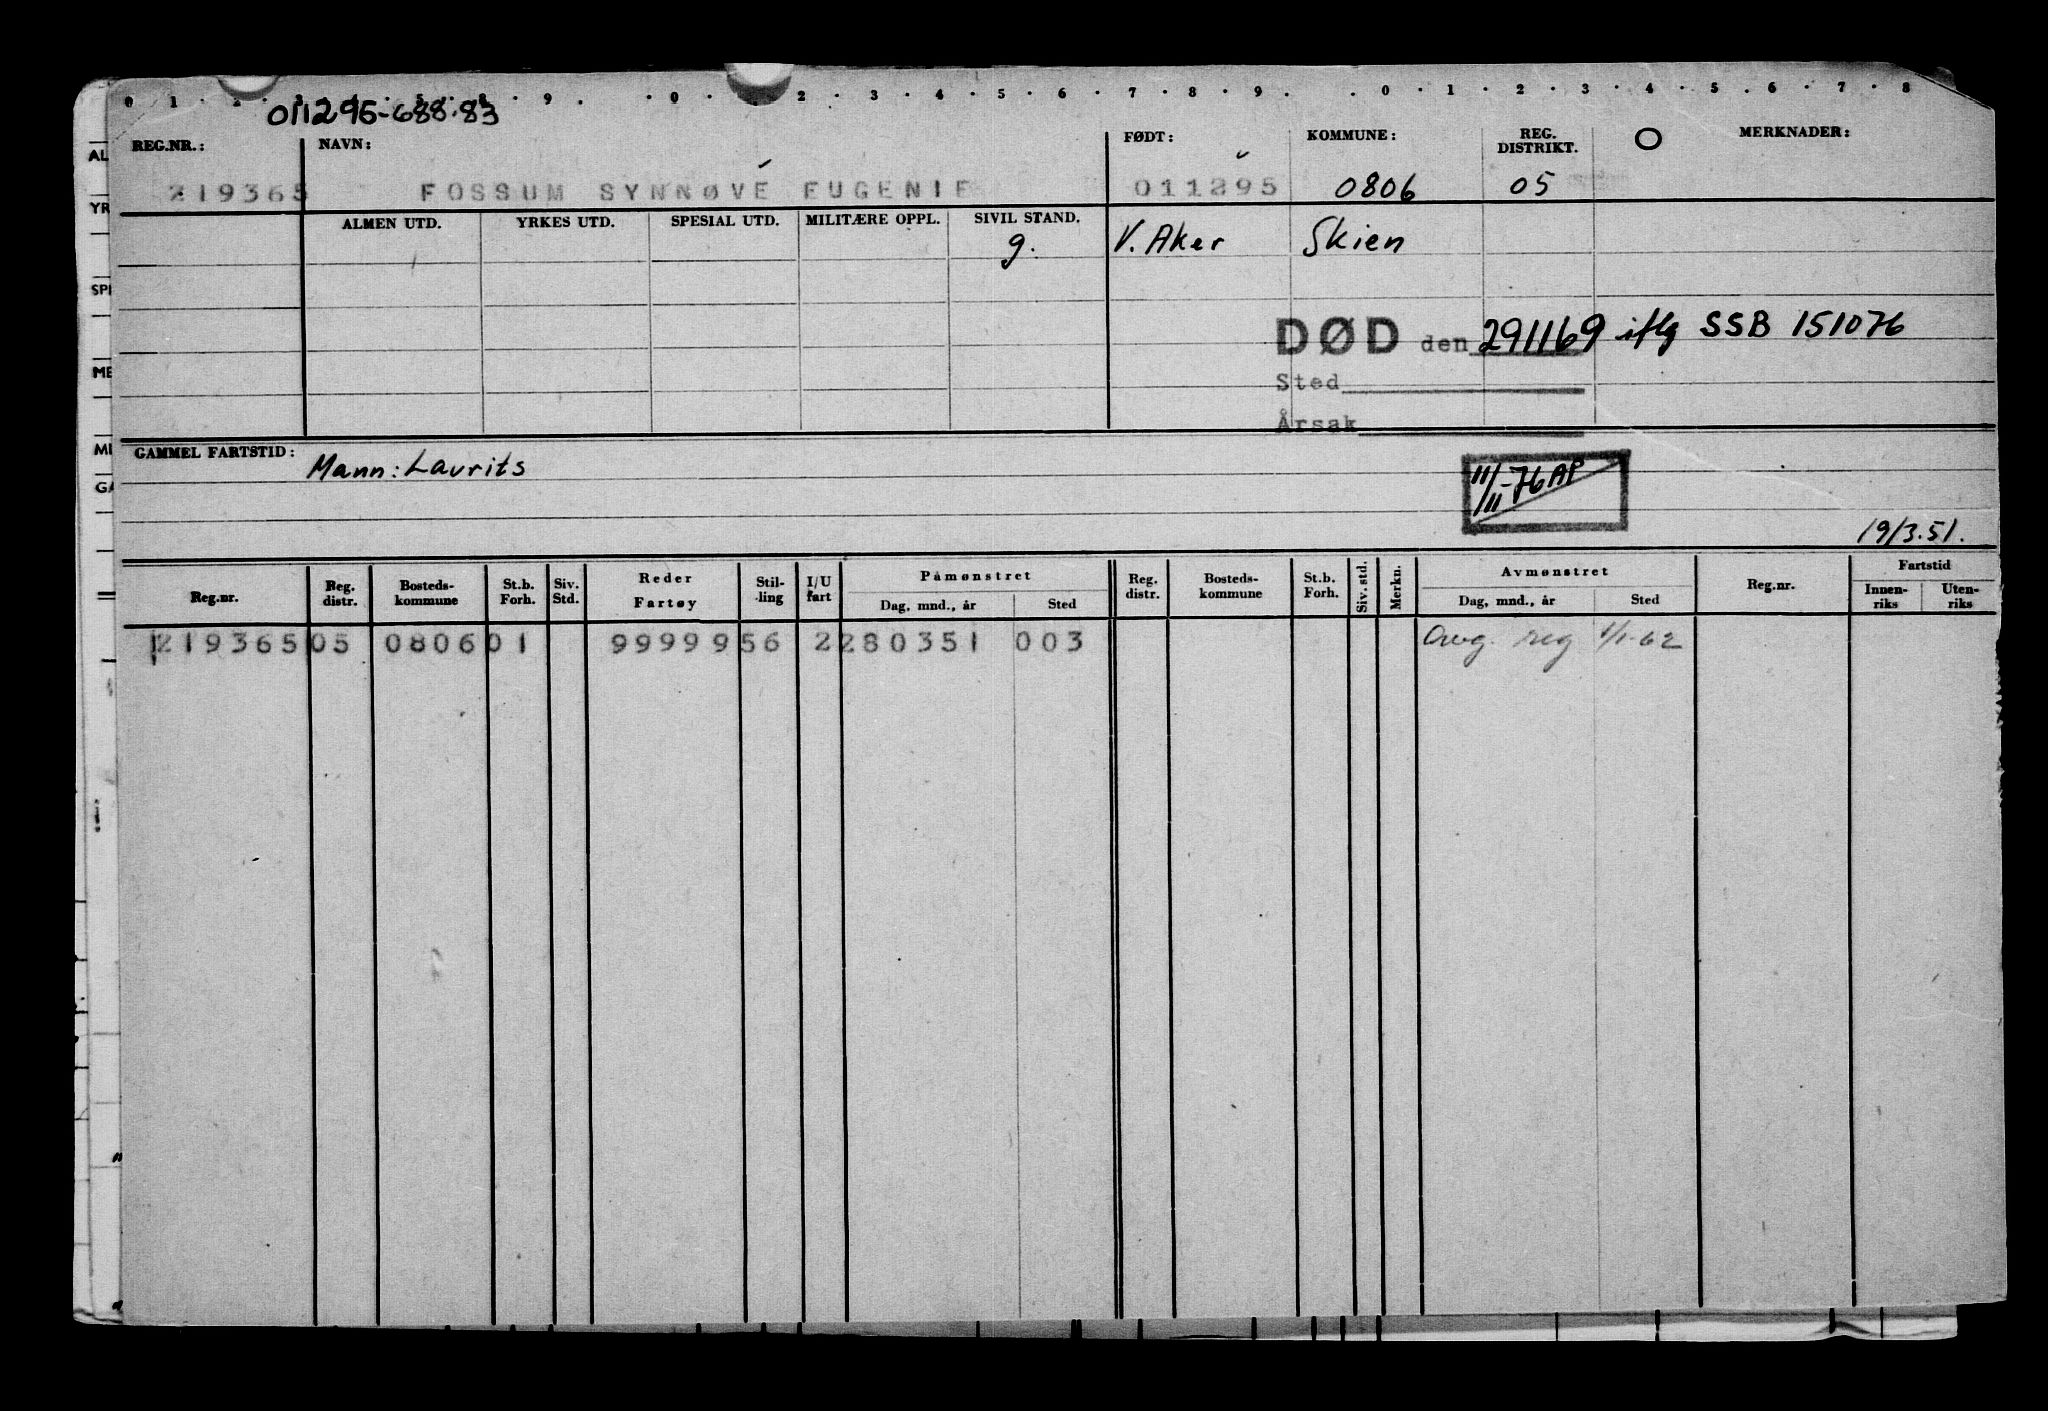 0 1 . 2 . 3 . 9 . . 0 . 2 . 3 . 4 . 5 . 6 . 7 . 8 . 9 . . 0 . 1 . 2 . 3 . 4 . 5 . 6 . 7 . 8
011295-688.83
REG.NR.: NAVN: FØDT: KOMMUNE: REG. DISTRIKT. O MERKNADER:
219365 FOSSUM SYNNØVE EUGENIE 011295 0806 05
ALMEN UTD. YRKES UTD. SPESIAL UTD. MILITÆRE OPPL. SIVIL STAND.
g. V. Aker Skien
DØD den 291169 iflg SSB 151076
Sted
Årsak
GAMMEL FARTSTID: Mann: Laurits
11/11-76 AP
19/3.51.
Reg.nr. Reg. distr. Bosteds-kommune St.b. Forh. Siv. Std. Reder Fartøy Stil-ling I/U fart Påmønstret Dag, mnd., år Sted Reg. distr. Bosteds-kommune St.b. Forh. Siv. std. Merkn. Avmønstret Dag, mnd., år Sted Reg.nr. Fartstid Innen-riks Uten-riks
219365 05 0806 01 99999 56 2 280351 003 Avg. reg 1/1-62